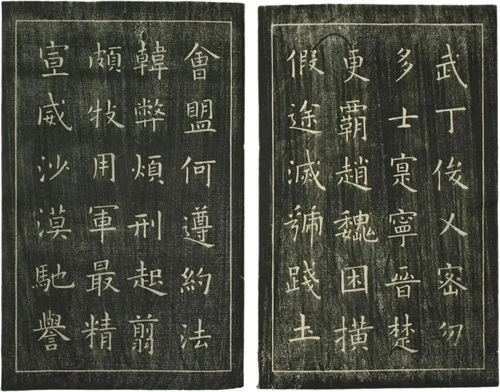 武丁俊乂密勿
多士寔寧晉楚
更霸趙魏困橫
假途滅虢踐土
會盟何遵約法
韓弊煩刑起翦
頗牧用軍最精
宣威沙漠馳譽